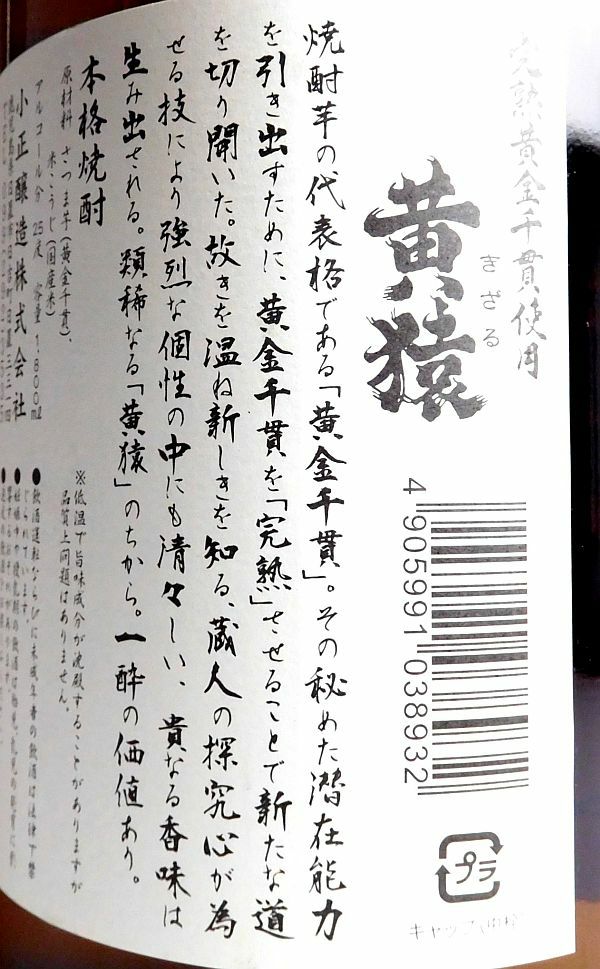 完熟黄金千貫使用
きざる
黄猿
4 905991 038932
プラ
キャップ(中栓)
焼酎芋の代表格である「黄金千貫」。その秘めた潜在能力
を引き出すために、黄金千貫を「完熟」させることで新たな道
を切り開いた。故きを温ね新しきを知る、蔵人の探究心が為
せる技により強烈な個性の中にも清々しい、貴なる香味は
生み出される。類稀なる「黄猿」のちから。一酔の価値あり。
本格焼酎
原材料 さつま芋(黄金千貫)、
米こうじ(国産米)
アルコール分 25度 容量 1,800ml
小正醸造株式会社
※低温で旨味成分が沈殿することがありますが
品質上問題はありません。
●飲酒運転ならびに未成年者の飲酒は法律で禁
じられています。